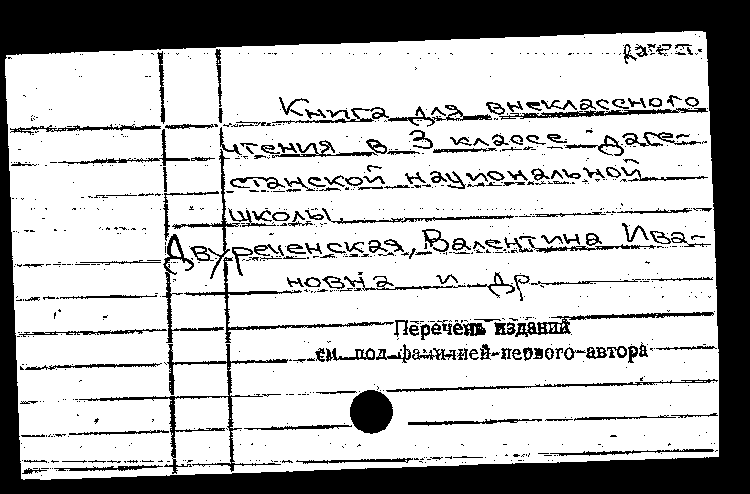 дагест.
Книга для внеклассного
чтения в 3 классе даге-
станской национальной
школы.
Двуреченская, Валентина Ива-
новна и др.
Перечень изданий
см. под фамилией первого автора